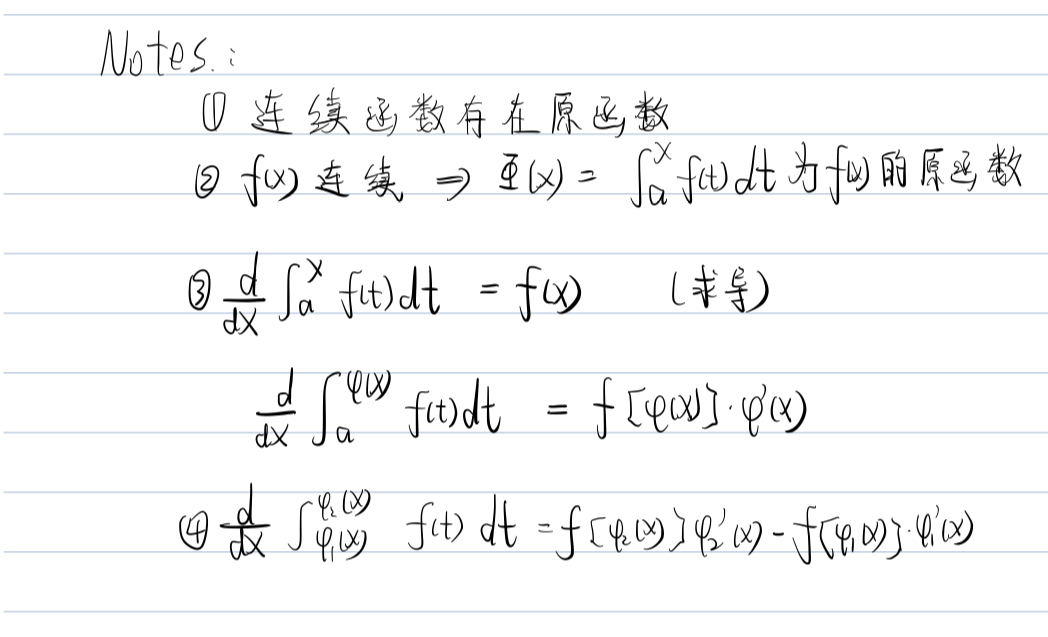 Notes:
① 连续函数存在原函数
② f(x) 连续 ⇒ Φ(x) = ∫_a^x f(t)dt 为 f(x) 的原函数
③ d/dx ∫_a^x f(t)dt = f(x) (求导)
d/dx ∫_a^φ(x) f(t)dt = f[φ(x)]·φ'(x)
④ d/dx ∫_φ₁(x)^φ₂(x) f(t) dt = f[φ₂(x)]φ₂'(x) - f[φ₁(x)]·φ₁'(x)